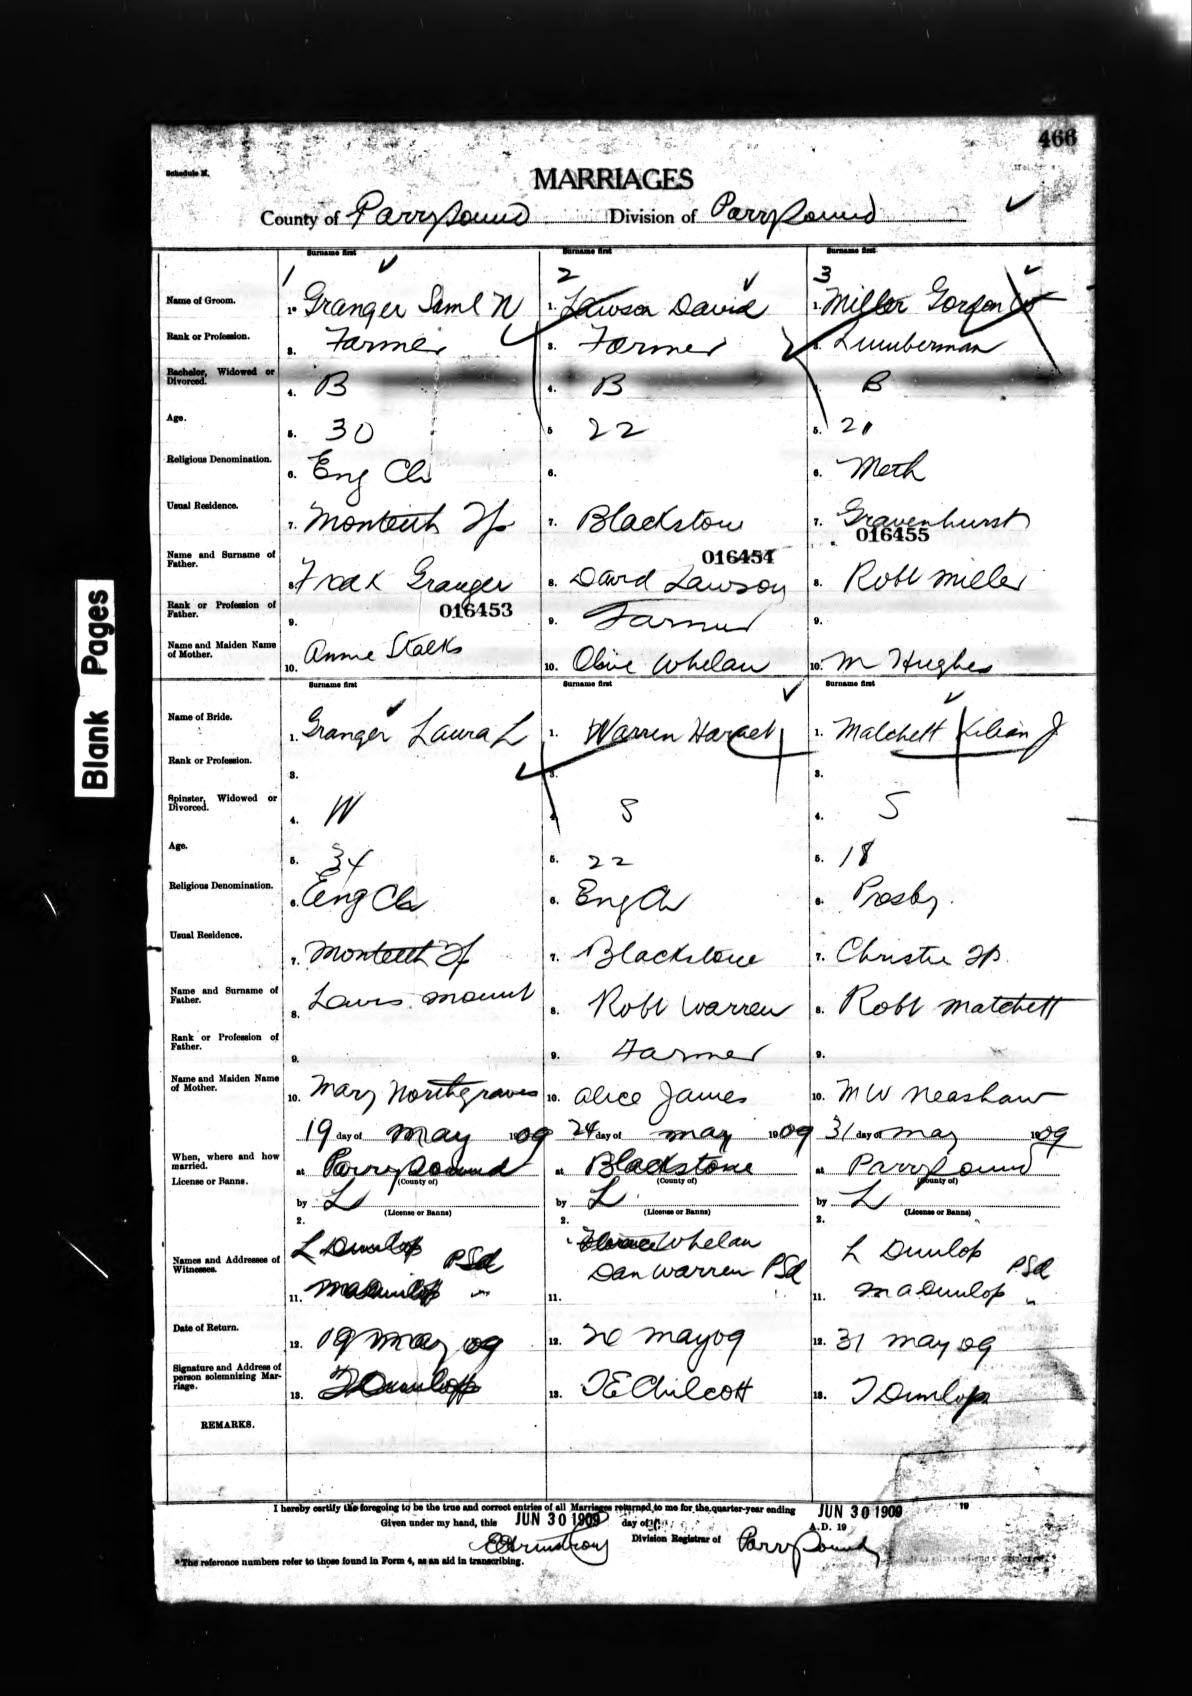 466
Schedule M.
MARRIAGES
County of Parry Sound Division of Parry Sound
Surname first Surname first Surname first
1 2 3
Name of Groom. 1. Granger Saml N 1. Lawson David 1. Miller Gordon W
Rank or Profession. 3. Farmer 3. Farmer 3. Lumberman
Bachelor, Widowed or Divorced. 4. B 4. B 4. B
Age. 5. 30 5 22 5. 21
Religious Denomination. 6. Eng Ch 6. 6. Meth
Usual Residence. 7. Monteith Tp 7. Blackstone 7. Gravenhurst
016454 016455
Name and Surname of Father. 8. Granger 8. David Lawson 8. Robt Miller
016453
Rank or Profession of Father. 9. 9. Farmer 9.
Name and Maiden Name of Mother. 10. Annie Stalks 10. Olive Whelan 10. M Hughes
Surname first Surname first Surname first
Name of Bride. 1. Granger Laura L 1. Warren Harriet 1. Matchett Lilian J
Rank or Profession. 3. 3. 3.
Spinster, Widowed or Divorced. 4. W 4. S 4. S
Age. 5. 34 5. 22 5. 18
Religious Denomination. 6. Eng Ch 6. Eng Ch 6. Presby.
Usual Residence. 7. Monteith Tp 7. Blackstone 7. Christie Tp.
Name and Surname of Father. 8. Louis Mount 8. Robt Warren 8. Robt Matchett
Rank or Profession of Father. 9. 9. Farmer 9.
Name and Maiden Name of Mother. 10. Mary Northgraves 10. Alice James 10. M W Neashaw
19 day of May 1909 24 day of May 1909 31 day of May 1909
When, where and how married. at Parry Sound at Blackstone at Parry Sound
(County of) (County of) (County of)
License or Banns. by L by L by L
(License or Banns) (License or Banns) (License or Banns)
2. 2. 2.
Names and Addresses of Witnesses. L Dunlop PSd Whelan L Dunlop PSd
11. M A Dunlop " 11. Dan Warren PSd 11. M A Dunlop "
Date of Return. 12. 19 May 09 12. 20 May 09 12. 31 May 09
Signature and Address of person solemnizing Marriage. 13. T Dunlop 13. T E Chilcott 13. T Dunlop
REMARKS.
I hereby certify the foregoing to be the true and correct entries of all Marriages returned to me for the quarter-year ending JUN 30 1909 19
Given under my hand, this JUN 30 1909 day of A.D. 19
E Armstrong Division Registrar of Parry Sound
*The reference numbers refer to those found in Form 4, as an aid in transcribing.
Blank Pages